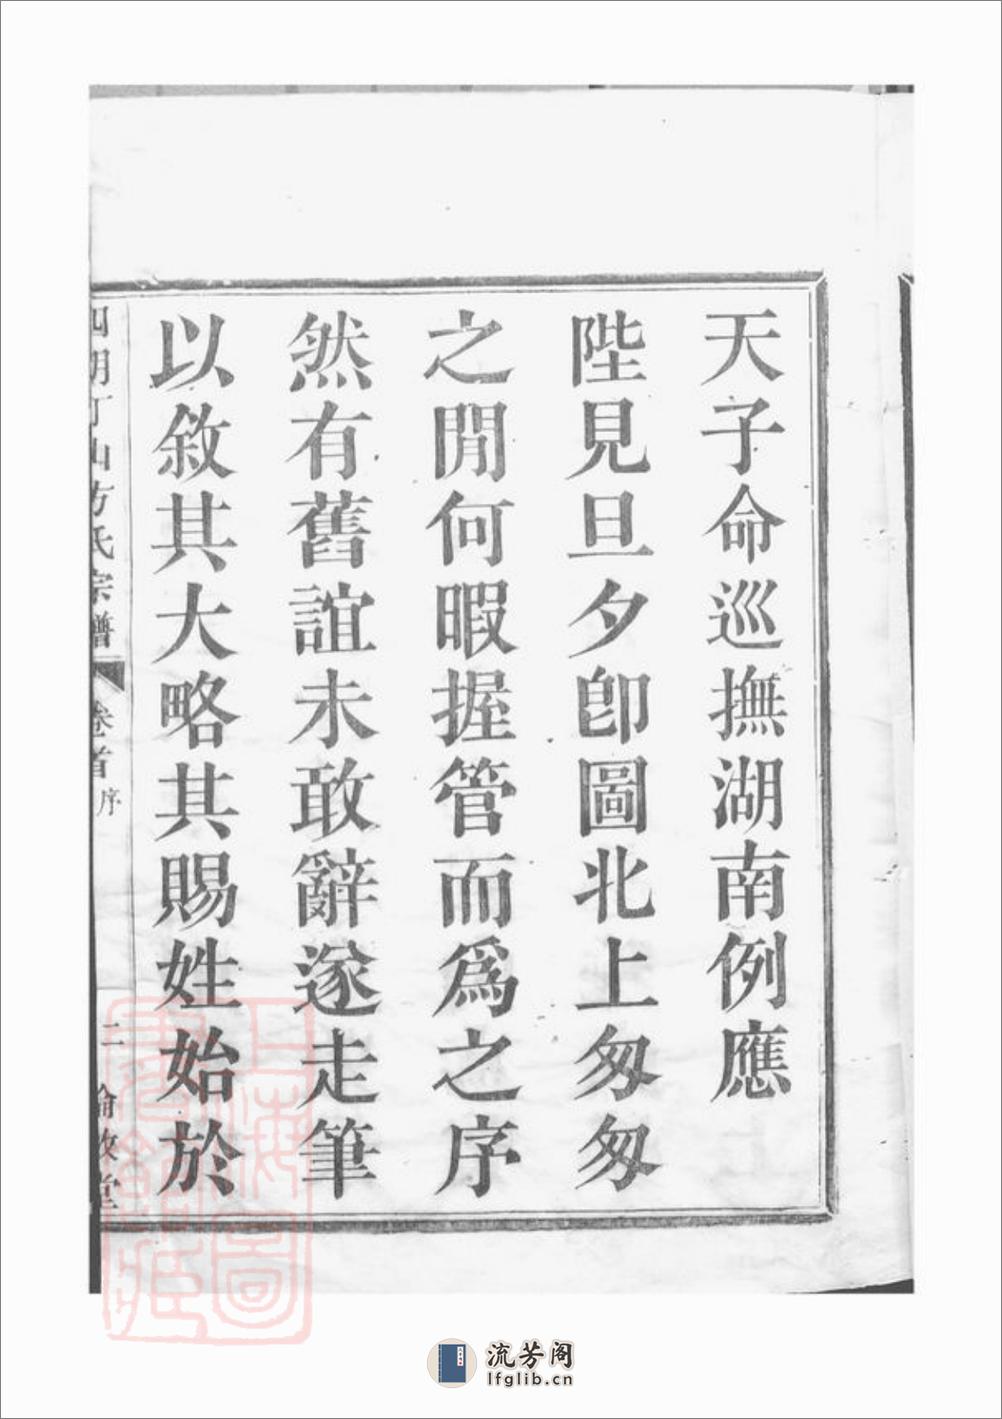 天子命巡撫湖南例應
陛見旦夕卽圖北上匆匆
之閒何暇握管而爲之序
然有舊誼未敢辭遂走筆
以敘其大略其賜姓始於
四明丁山方氏宗譜
卷首
序
二
倫敘堂
上海圖書館藏
流芳阁
lfglib.cn